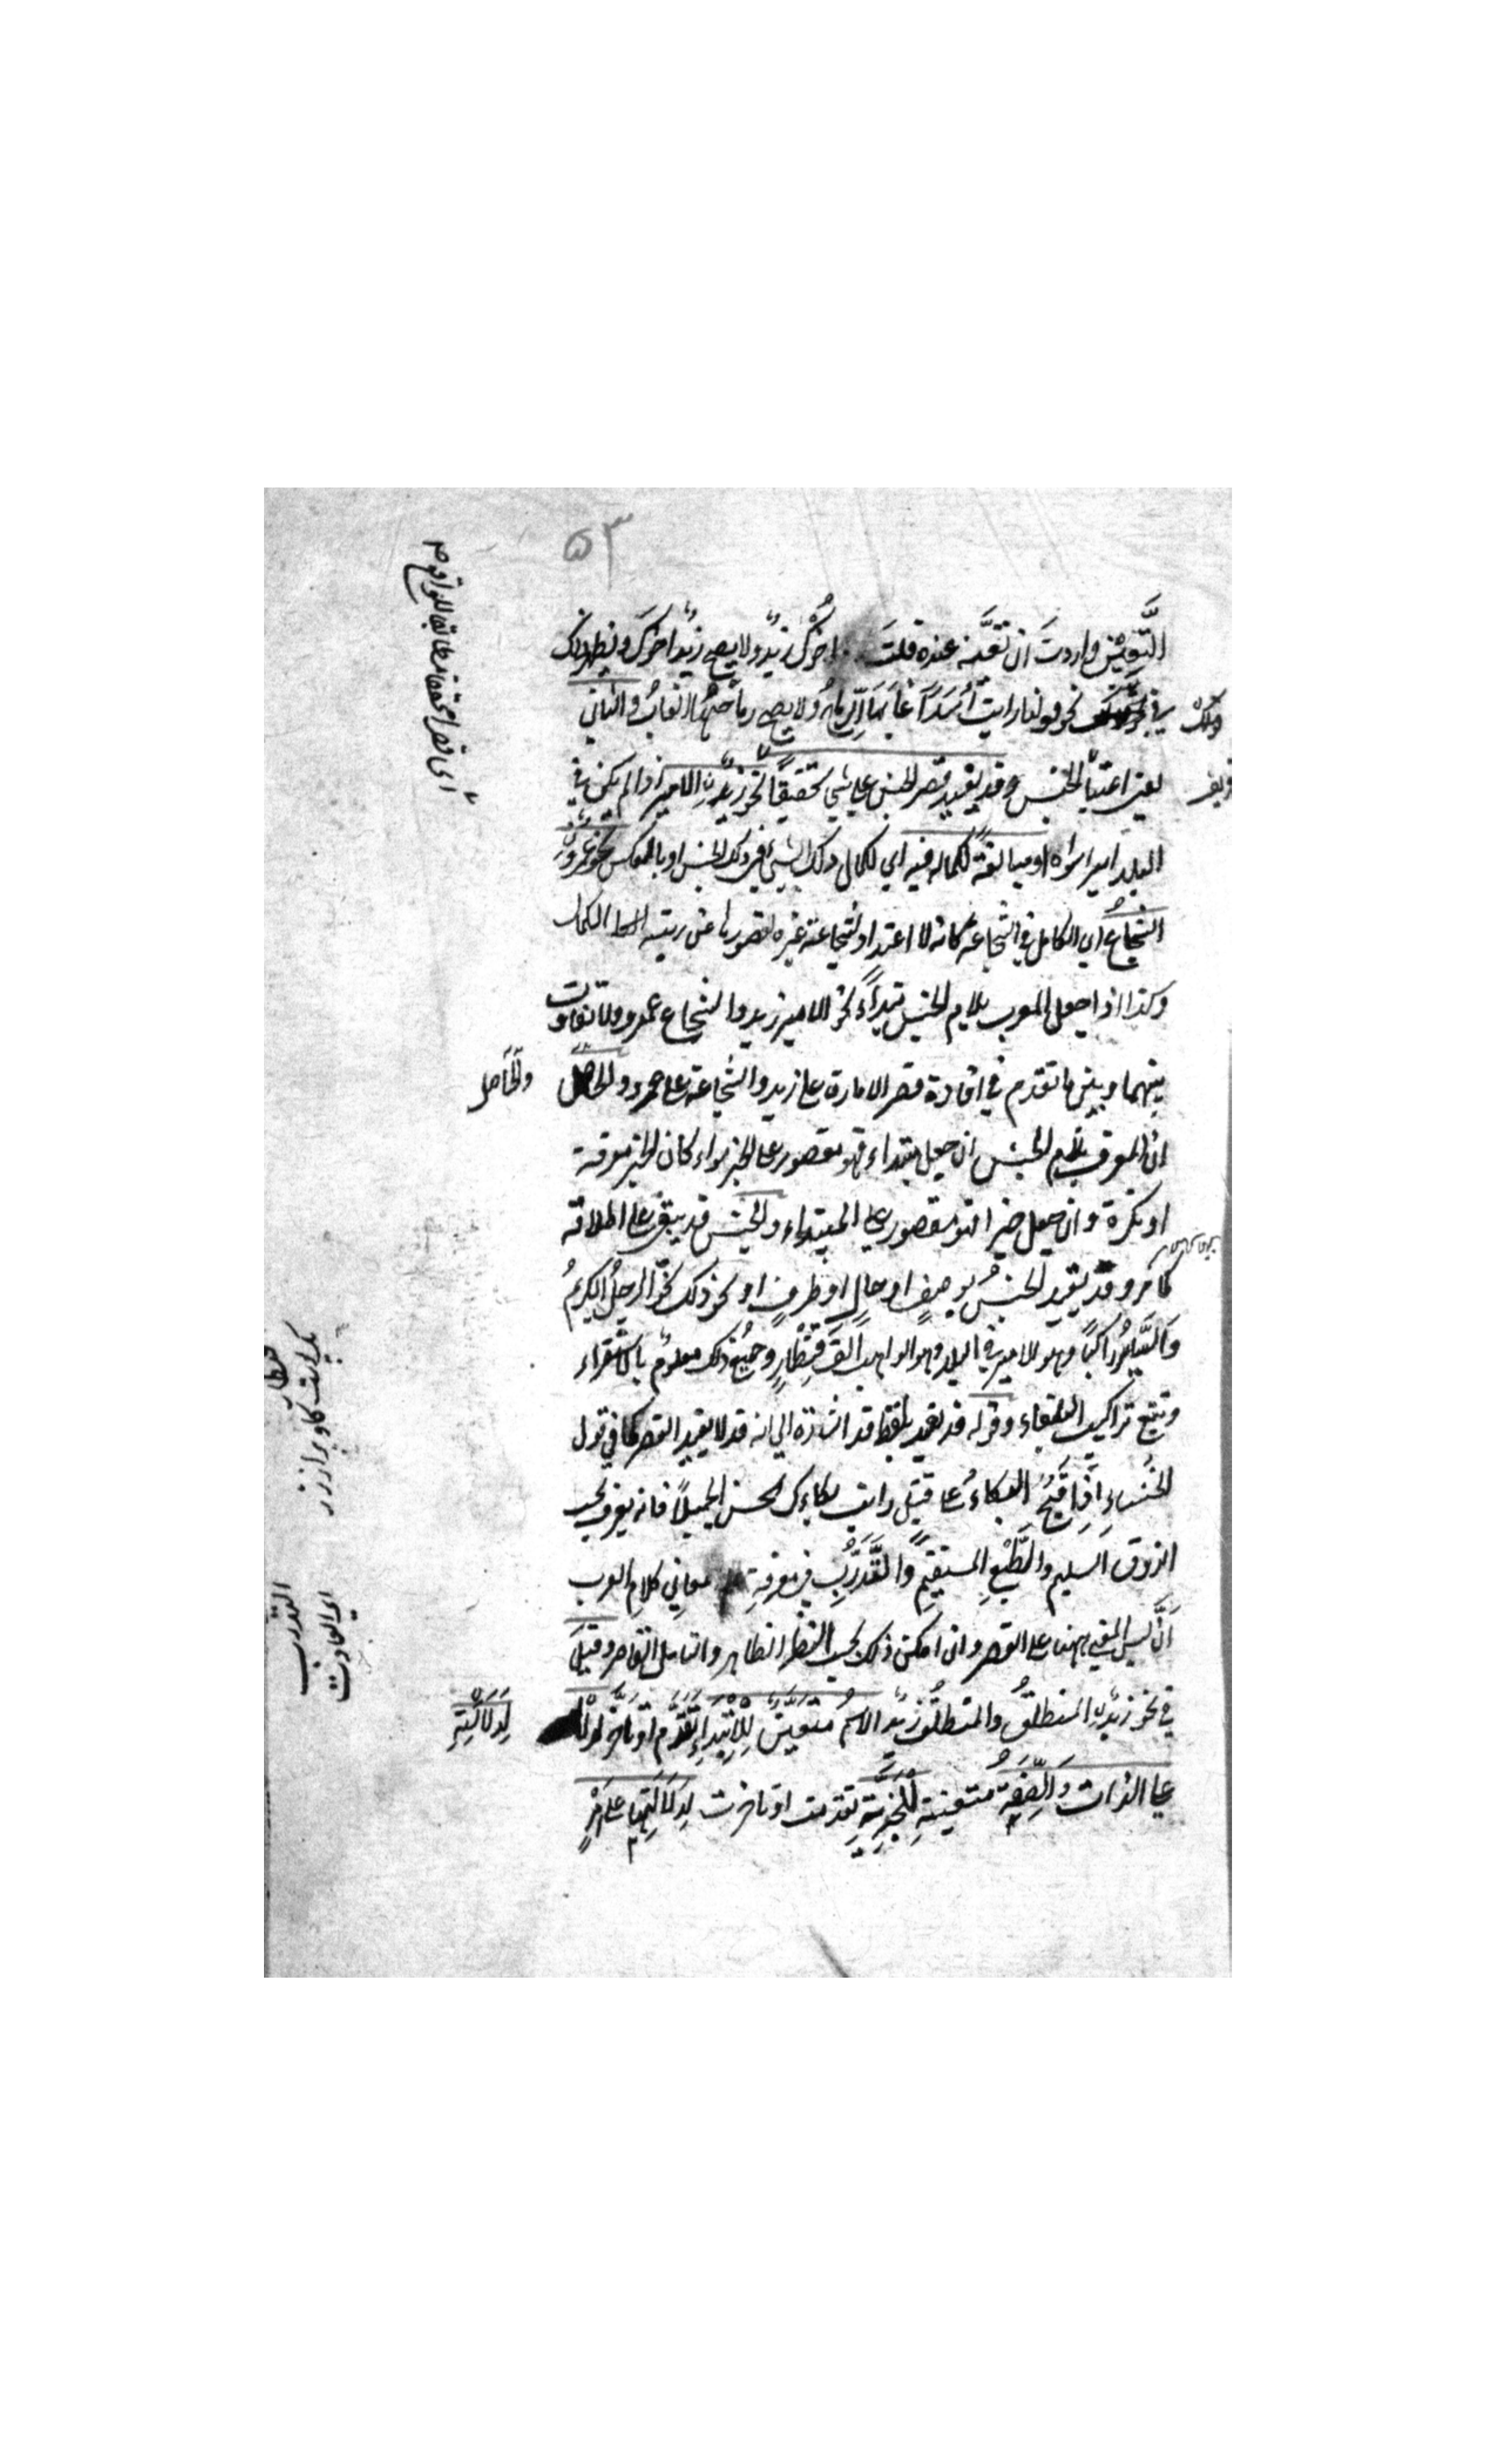 ٥٣
التَّعِيْين واردتَ ان تعيِّنه عنده قلتَ اخوكَ زيدٌ ولا يصح زيدٌ اخوكَ ويظهر ذلك
في نحو قولنا رايت أُسَدًا غَابُهَا الرِّمَاحُ ولا يصح رماحُهَا الغابُ والثاني
يعني اعتبار الجنس وقد يفيد قصر الجنس على شئ تحقيقًا نحو زيدٌ الامير اذا لم يكن في
البلد امير سواه او مبالغةً لكماله فيه اي لكمال ذلك الشئ في ذلك الجنس او بالعكس نحو عمروٌ
الشجاعُ اي الكامل في الشجاعة كانه لا اعتداد لشجاعة غيره لقصورها عن رتبة الكمال
وكذا اذا جعل المعرب بلام الجنس مبتداءً نحو الامير زيد والشجاع عمرو ولا تفاوت
بينهما وبين ما تقدم في افادة قصر الامارة على زيد والشجاعة على عمرو والحاصل
والحاصل
ان المعرف بلام الجنس ان جعل مبتداء فهو مقصور على الخبر سواء كان الخبر معرفة
او نكرة وان جعل خبرا فهو مقصور على المبتداء والجنس قد يبقى على اطلاقه
كما مر وقد يقيد الجنسُ بوصفٍ او حالٍ او ظرفٍ او نحو ذلك نحو الرجلُ الكريمُ
والسَّايرُ راكبًا وهو الامير في البلد وهو الواهب الفَ قنطارٍ وجميعُ ذلك معلومٌ بالاستقراء
وتتبع تراكيب البلغاء وقوله قد يفيد بلفظ قد اشارة الي انه قد لا يفيد القصر كما في قول
الخنساءِ اذا قَبُحَ البكاءُ على قتيل رايت بكاءك الحسن الجميلاً فانه يعرف بحسب
الذوق السليم والطَّبْعِ المستقيمِ والتَّدَرُّبِ في معرفةِ معاني كلامِ العرب
أنْ ليس المعني ههنا على القصر وان امكن ذلك بحسب النظر الظاهر والتامل القاصر وقيلَ
في نحو زيدٌ المنطلقُ والمنطلقُ زيدٌ الاسمُ متعيِّنٌ لِلْاِبْتِدَاءِ تَقَدَّمَ او تاخَّرَ
لِدَلَالَتِهِ
على الذات والصِّفَةِ متعينةٌ لِلْخَبَرِيَّةِ تقدمت او تاخرت لِدَلَالَتِهَا على امرٍ
التدرب